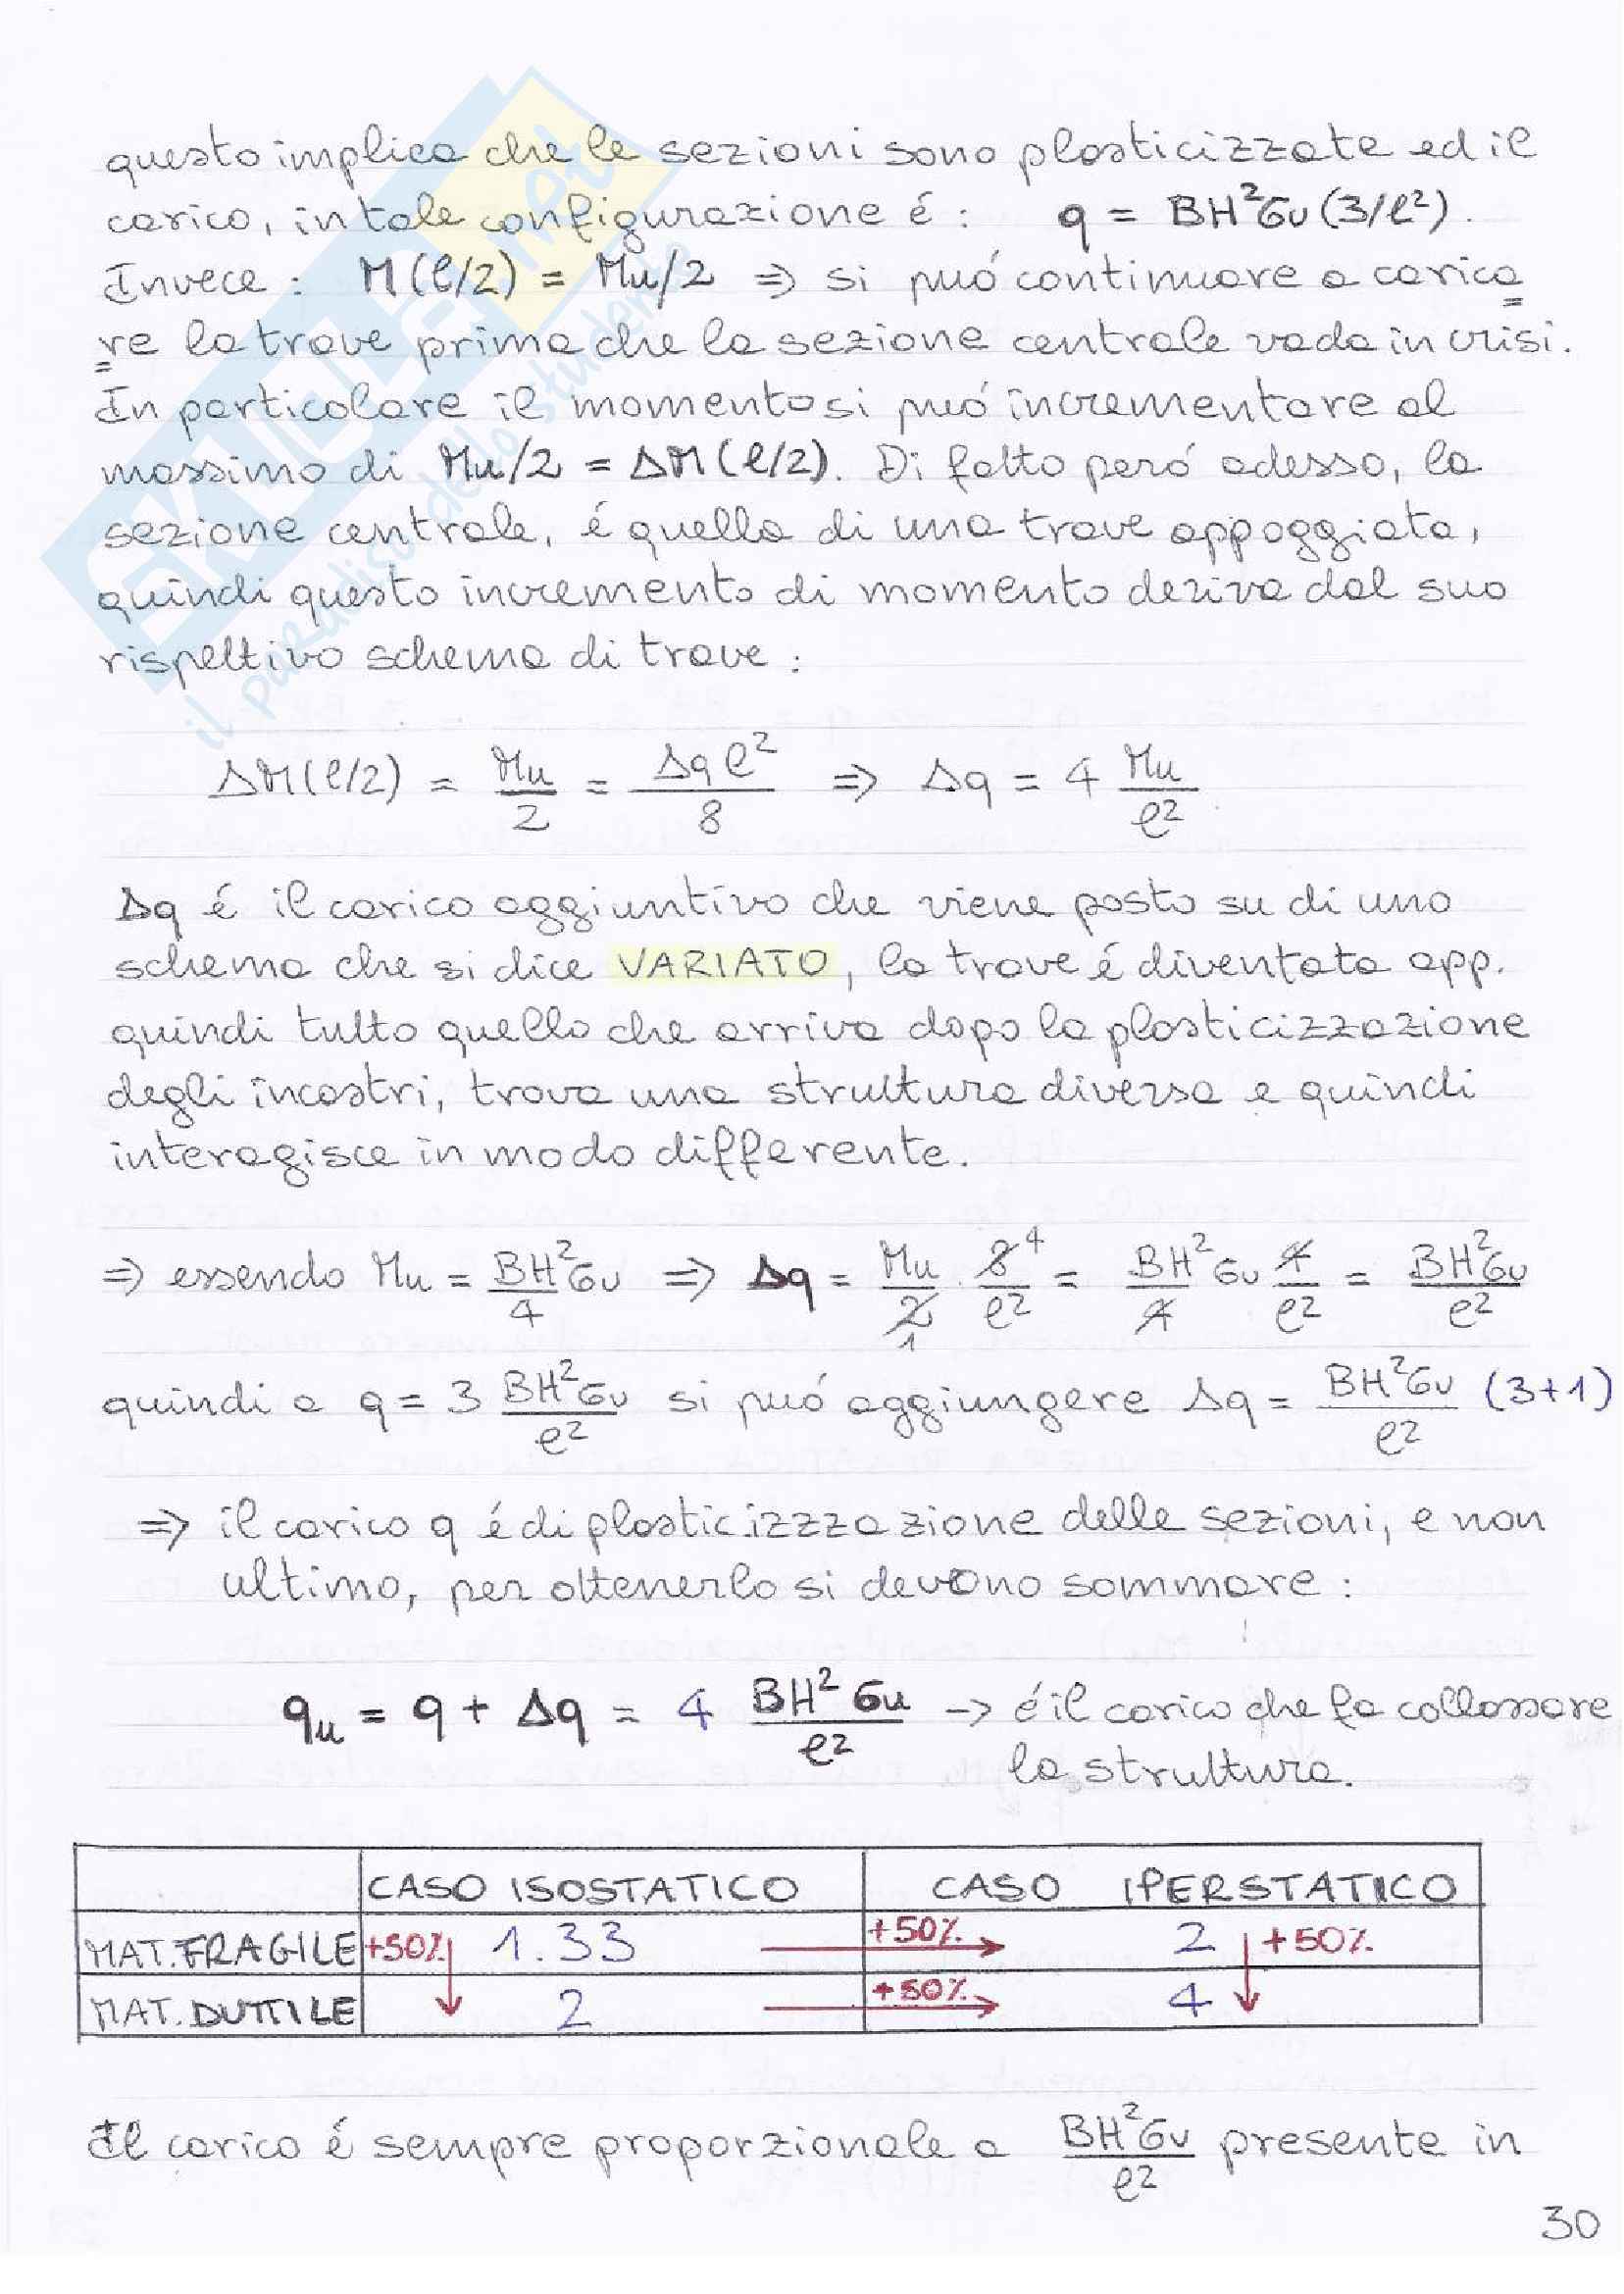 questo implica che le sezioni sono plasticizzate ed il
carico, in tale configurazione é : q = BH²σu (3/l²).
Invece : M(l/2) = Mu/2 ⇒ si puó continuare a carica
re la trave prima che la sezione centrale vada in crisi.
In particolare il momento si puó incrementare al
massimo di Mu/2 = ΔM(l/2). Di fatto peró adesso, la
sezione centrale, é quella di una trave appoggiata,
quindi questo incremento di momento deriva dal suo
rispettivo schema di trave :
ΔM(l/2) = Mu/2 = Δq l²/8 ⇒ Δq = 4 Mu/l²
Δq é il carico aggiuntivo che viene posto su di uno
schema che si dice VARIATO, la trave é diventata app.
quindi tutto quello che arriva dopo la plasticizzazione
degli incastri, trova una struttura diversa e quindi
interagisce in modo differente.
⇒ essendo Mu = BH²σu/4 ⇒ Δq = Mu/2 1 · 8 4/l² = BH²σu/4 4/l² = BH²σu/l²
quindi a q = 3 BH²σu/l² si puó aggiungere Δq = BH²σu/l² (3+1)
⇒ il carico q é di plasticizzzazione delle sezioni, e non
ultimo, per ottenerlo si devono sommare :
qu = q + Δq = 4 BH²σu/l² → é il carico che fa collassare
la struttura.
CASO ISOSTATICO CASO IPERSTATICO
MAT. FRAGILE +50% 1.33 +50% 2 +50%
MAT. DUTTILE 2 +50% 4
Il carico é sempre proporzionale a BH²σu/l² presente in
30
SKUOLA.net
il paradiso dello studente